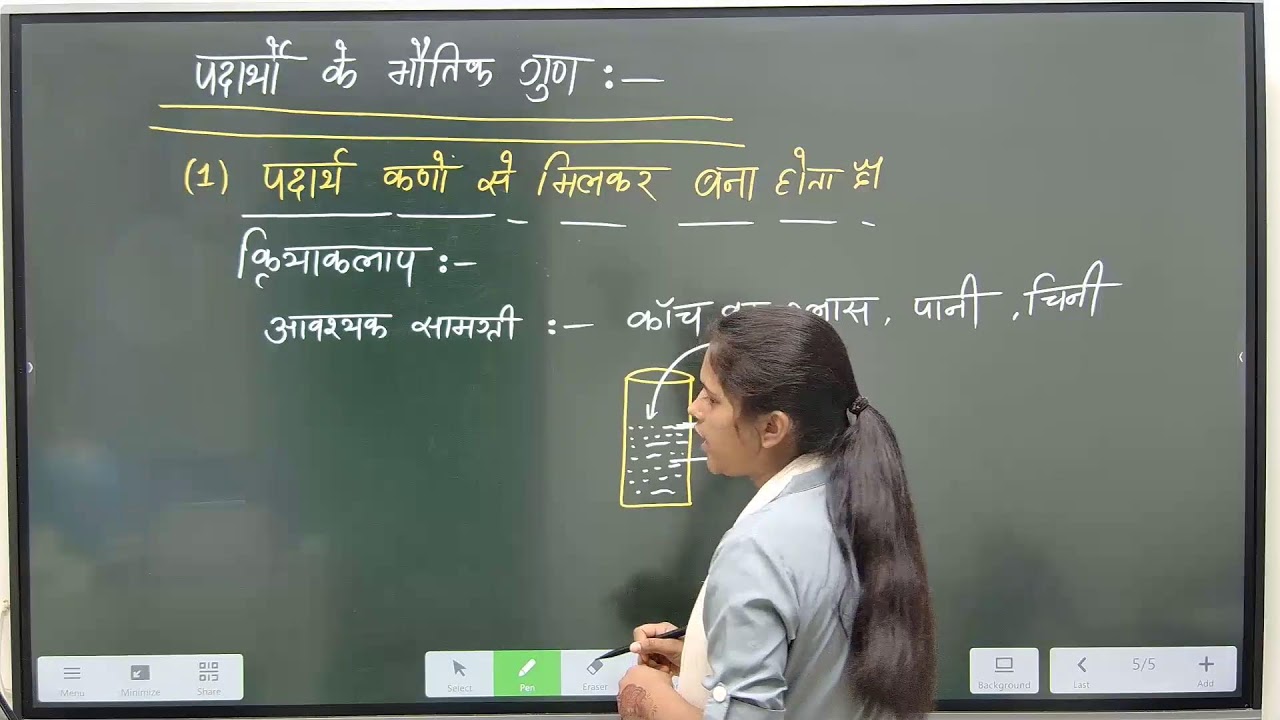 पदार्थों के भौतिक गुण :—
(1) पदार्थ कणों से मिलकर बना होता है।
क्रियाकलाप :-
आवश्यक सामग्री :— काँच ग्लास, पानी, चिनी
Menu
Minimize
Share
Select
Pen
Eraser
Background
Last
5/5
Add